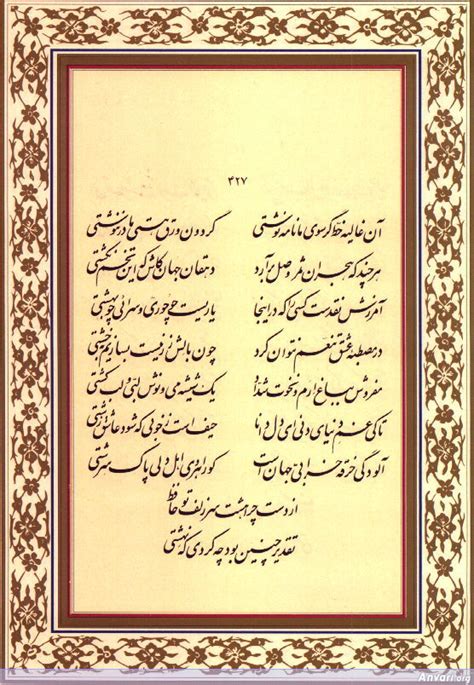 ۴۲۷
آن غالیه خط گر سوی ما نامه نوشتی گردون ورق هستی ما در ننوشتی
هر چند که هجران ثمر وصل برآرد دهقان جهان کاش که این تخم نکشتی
آمرزش نقدست کسی را که در اینجا یاریست چو حوری و سرائی چو بهشتی
در مصطبه عشق تنعم نتوان کرد چون بالش زر نیست بسازیم بخشتی
مفروش بباغ ارم و نخوت شداد یک شیشه می و نوش لبی و لب کشتی
تا کی غم دنیای دنی ای دل دانا حیف است ز خوبی که شود عاشق زشتی
آلودگی خرقه خرابی جهان است کو راهروی اهل دلی پاک سرشتی
از دست چرا هشت سر زلف تو حافظ
تقدیر چنین بود چه کردی که نهشتی
Anvari.org